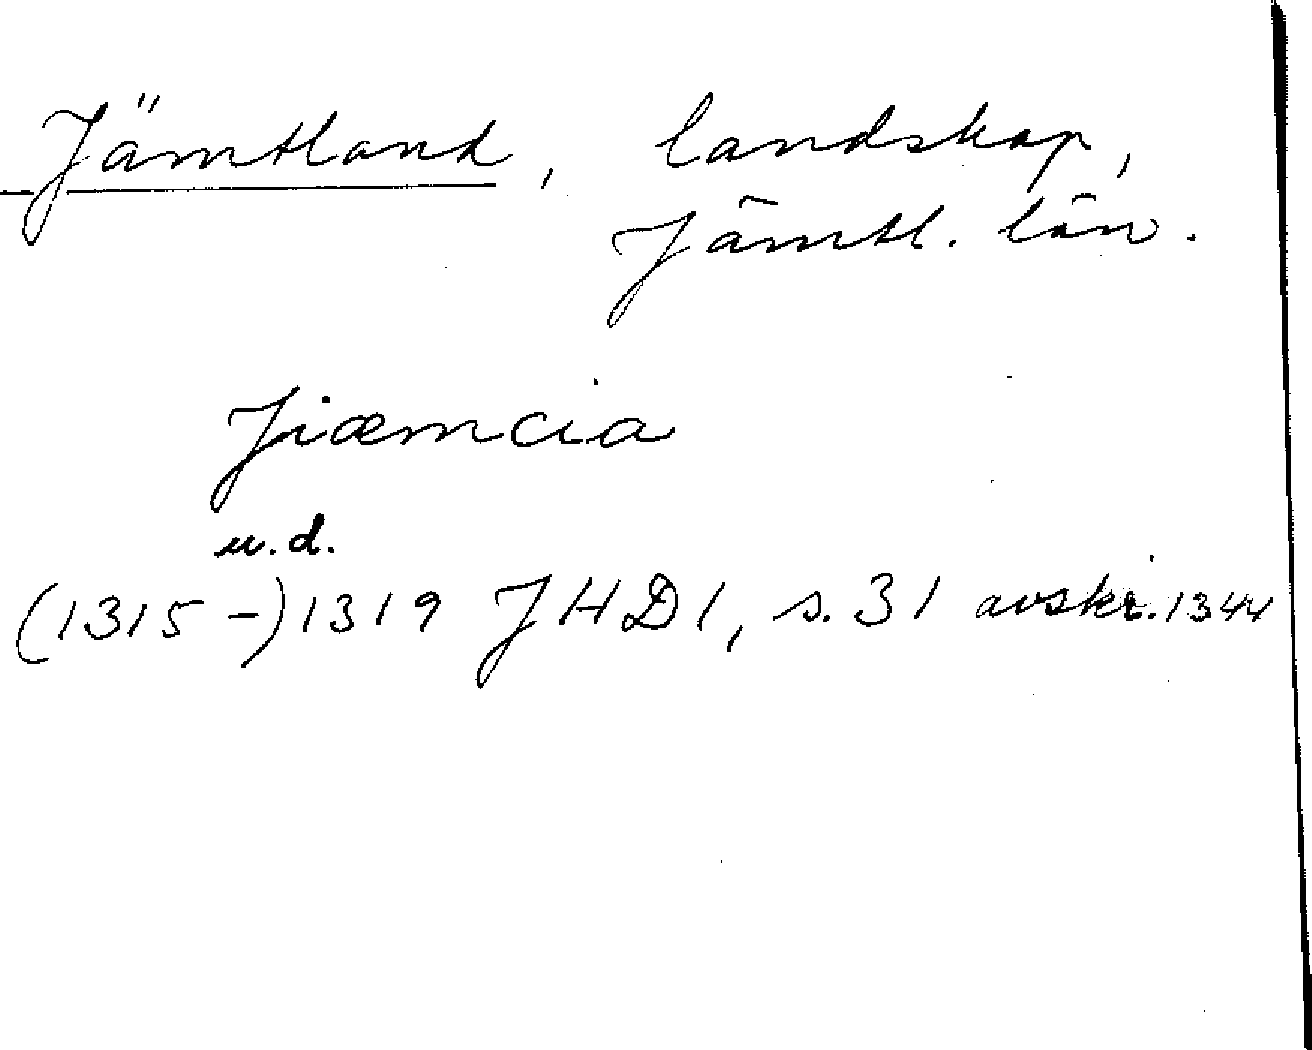 Jämtland, landskap,
Jämtl. län.
Jiæmcia
u.d.
(1315-)1319 JHD1, s. 31 avskr. 1344